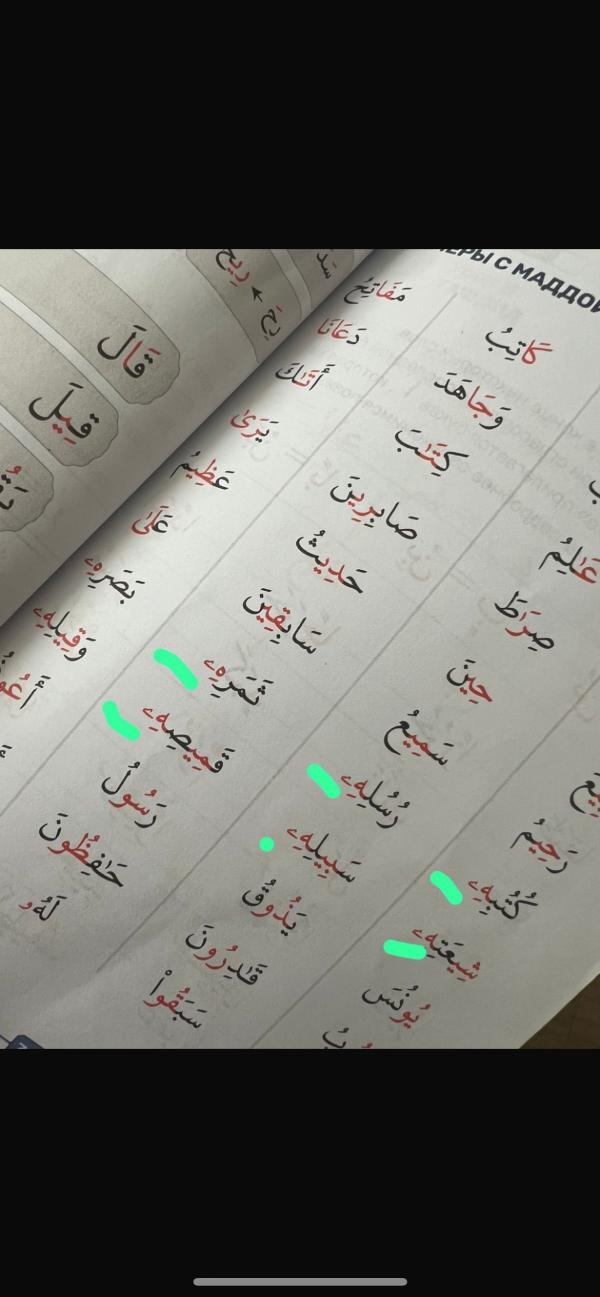 قَالَ
قِيلَ
رِيحَ
كَاتِبُ مَفَاتِيحُ
وَجَاهَدَ دَعَانَا
عَٰلِمُ كِتَٰبَ أَتَىٰكَ
صِرَاطَ صَابِرِينَ يَرَىٰ
حِينَ حَدِيثُ عَظِيمُ
رَحِيمُ سَمِيعُ سَابِقِينَ عَلَىٰ
كُتُبِهِۦ رُسُلِهِۦ ثَمَرِهِۦ بَصَرِهِۦ
شِيعَتِهِۦ سَبِيلِهِۦ قَمِيصِهِۦ وَقِيلِهِۦ
يُونُسَ يَذُوقُ رَسُولُ
قَٰدِرُونَ حَٰفِظُونَ
سَبَقُوا۟ لَهُۥ